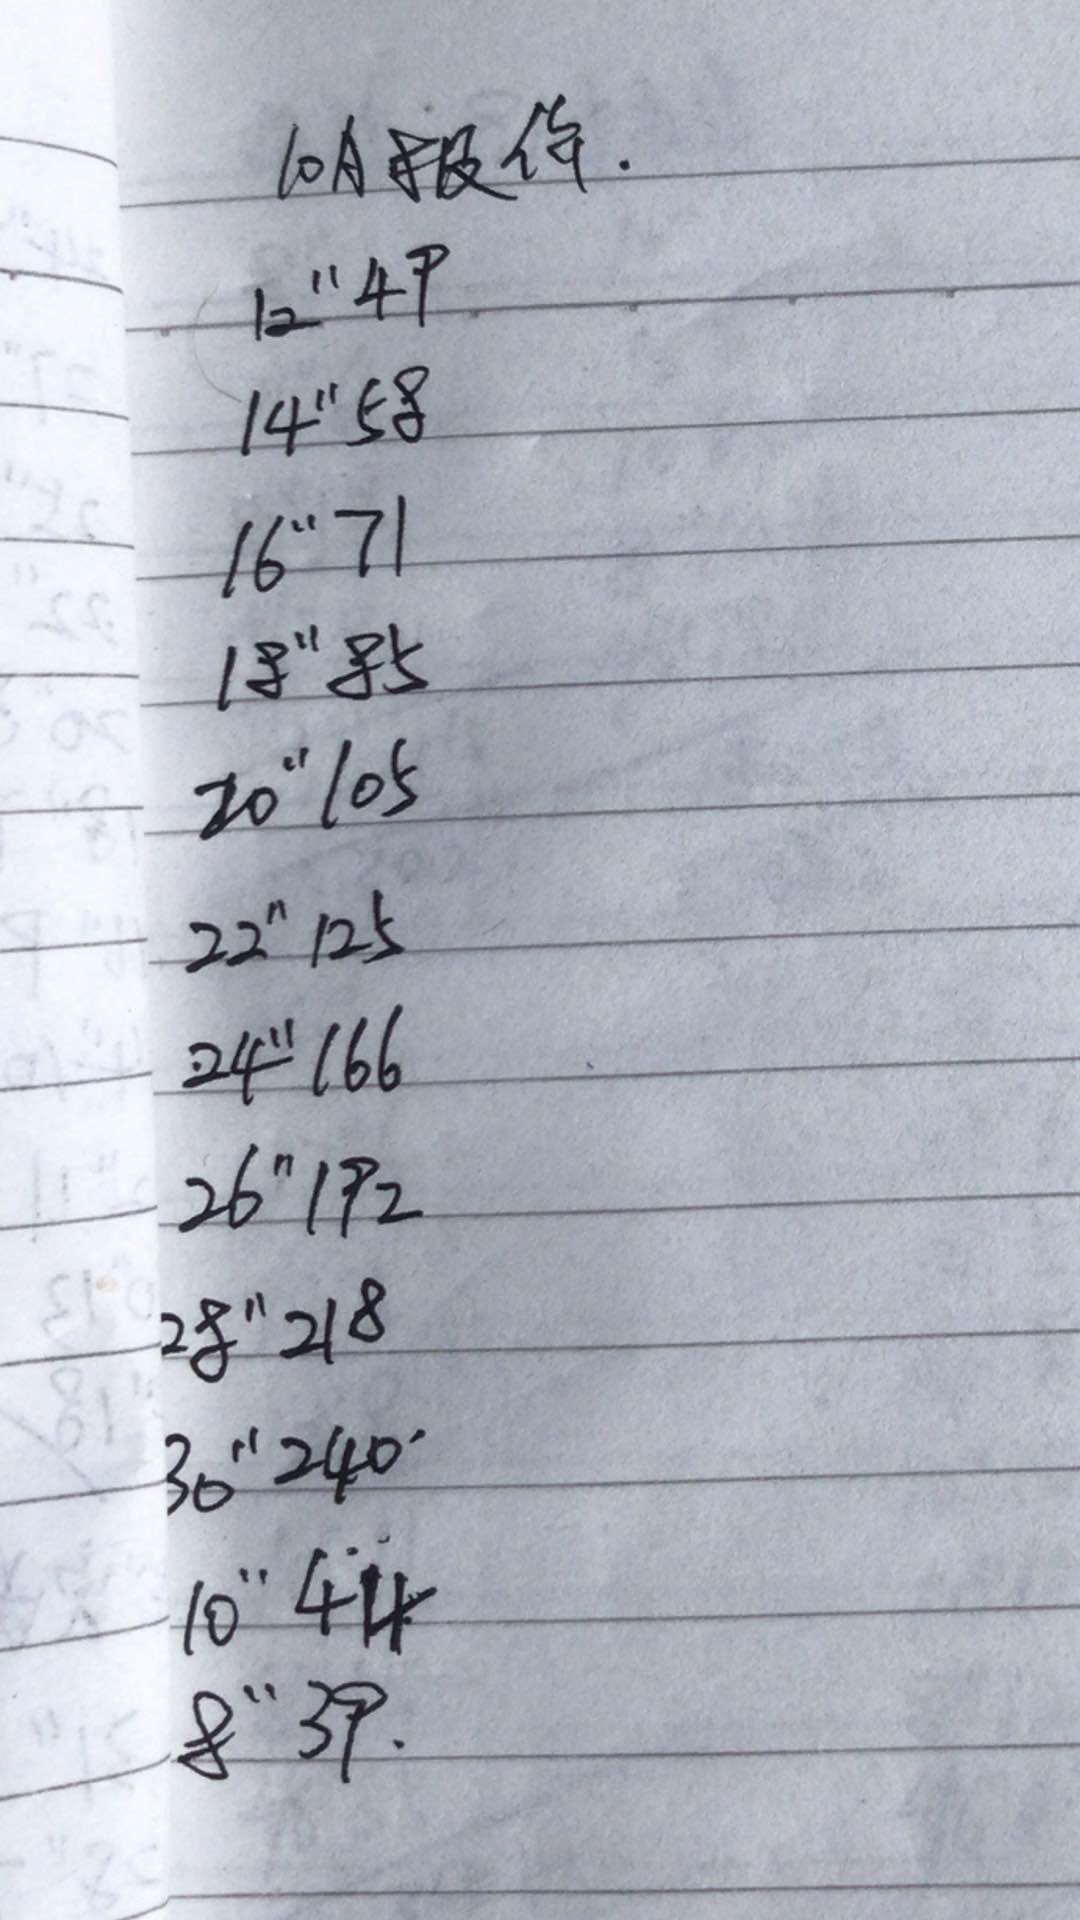 10A报价.
12" 49
14" 58
16" 71
18" 85
20" 105
22" 125
24" 166
26" 192
28" 218
30" 240
10" 44
8" 39.